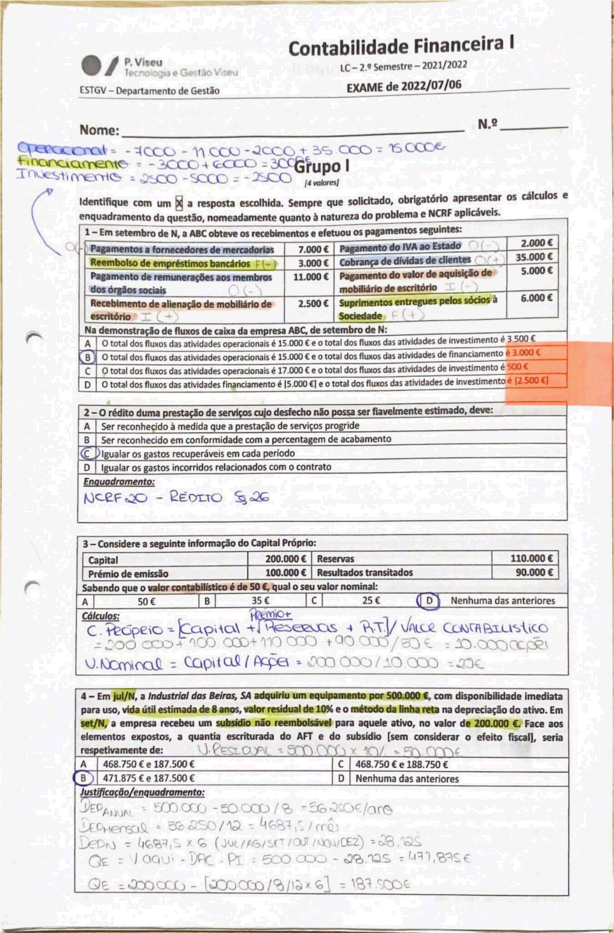 Contabilidade Financeira I
P. Viseu
Tecnologia e Gestão Viseu
LC – 2.º Semestre – 2021/2022
ESTGV – Departamento de Gestão
EXAME de 2022/07/06
Nome: N.º
Operacional = -7000 - 11 000 - 2000 + 35 000 = 15 000€
Financiamento = -3000 + 6000 = 3000€
Investimento = 2500 - 5000 = -2500
Grupo I
[4 valores]
Identifique com um X a resposta escolhida. Sempre que solicitado, obrigatório apresentar os cálculos e
enquadramento da questão, nomeadamente quanto à natureza do problema e NCRF aplicáveis.
1 – Em setembro de N, a ABC obteve os recebimentos e efetuou os pagamentos seguintes:
O(-) Pagamentos a fornecedores de mercadorias 7.000 € Pagamento do IVA ao Estado O(-) 2.000 €
Reembolso de empréstimos bancários F(-) 3.000 € Cobrança de dívidas de clientes O(+) 35.000 €
Pagamento de remunerações aos membros dos órgãos sociais O(-) 11.000 € Pagamento do valor de aquisição de mobiliário de escritório I(-) 5.000 €
Recebimento de alienação de mobiliário de escritório I(+) 2.500 € Suprimentos entregues pelos sócios à Sociedade F(+) 6.000 €
Na demonstração de fluxos de caixa da empresa ABC, de setembro de N:
A O total dos fluxos das atividades operacionais é 15.000 € e o total dos fluxos das atividades de investimento é 3.500 €
B O total dos fluxos das atividades operacionais é 15.000 € e o total dos fluxos das atividades de financiamento é 3.000 €
C O total dos fluxos das atividades operacionais é 17.000 € e o total dos fluxos das atividades de investimento é 500 €
D O total dos fluxos das atividades financiamento é [5.000 €] e o total dos fluxos das atividades de investimento é [2.500 €]
2 – O rédito duma prestação de serviços cujo desfecho não possa ser fiavelmente estimado, deve:
A Ser reconhecido à medida que a prestação de serviços progride
B Ser reconhecido em conformidade com a percentagem de acabamento
C Igualar os gastos recuperáveis em cada período
D Igualar os gastos incorridos relacionados com o contrato
Enquadramento:
NCRF 20 - RÉDITO § 26
3 – Considere a seguinte informação do Capital Próprio:
Capital 200.000 € Reservas 110.000 €
Prémio de emissão 100.000 € Resultados transitados 90.000 €
Sabendo que o valor contabilístico é de 50 €, qual o seu valor nominal:
A 50 € B 35 € C 25 € D Nenhuma das anteriores
Cálculos:
Prémio+
C. Própeio = [Capital + Reservas + R.T] / Valor Contabilístico
= 200 000 + 100 000 + 110 000 + 90 000 / 50€ = 10.000 ações
V. Nominal = Capital / Ações = 200 000 / 10 000 = 20€
4 – Em jul/N, a Industrial das Beiras, SA adquiriu um equipamento por 500.000 €, com disponibilidade imediata
para uso, vida útil estimada de 8 anos, valor residual de 10% e o método da linha reta na depreciação do ativo. Em
set/N, a empresa recebeu um subsídio não reembolsável para aquele ativo, no valor de 200.000 €. Face aos
elementos expostos, a quantia escriturada do AFT e do subsídio [sem considerar o efeito fiscal], seria
respetivamente de: V. Residual = 500.000 x 10% = 50.000€
A 468.750 € e 187.500 € C 468.750 € e 188.750 €
B 471.875 € e 187.500 € D Nenhuma das anteriores
Justificação/enquadramento:
Dep Anual = 500 000 - 50 000 / 8 = 56 250€/ano
Dep Mensal = 56 250 / 12 = 4687,5 / mês
Dep N = 4687,5 x 6 (JUL/AG/SET/OUT/NOV/DEZ) = 28.125
QE = V aqui - DAC - PI = 500 000 - 28.125 = 471,875€
QE = 200 000 - [200 000 / 8 / 12 x 6] = 187.500€